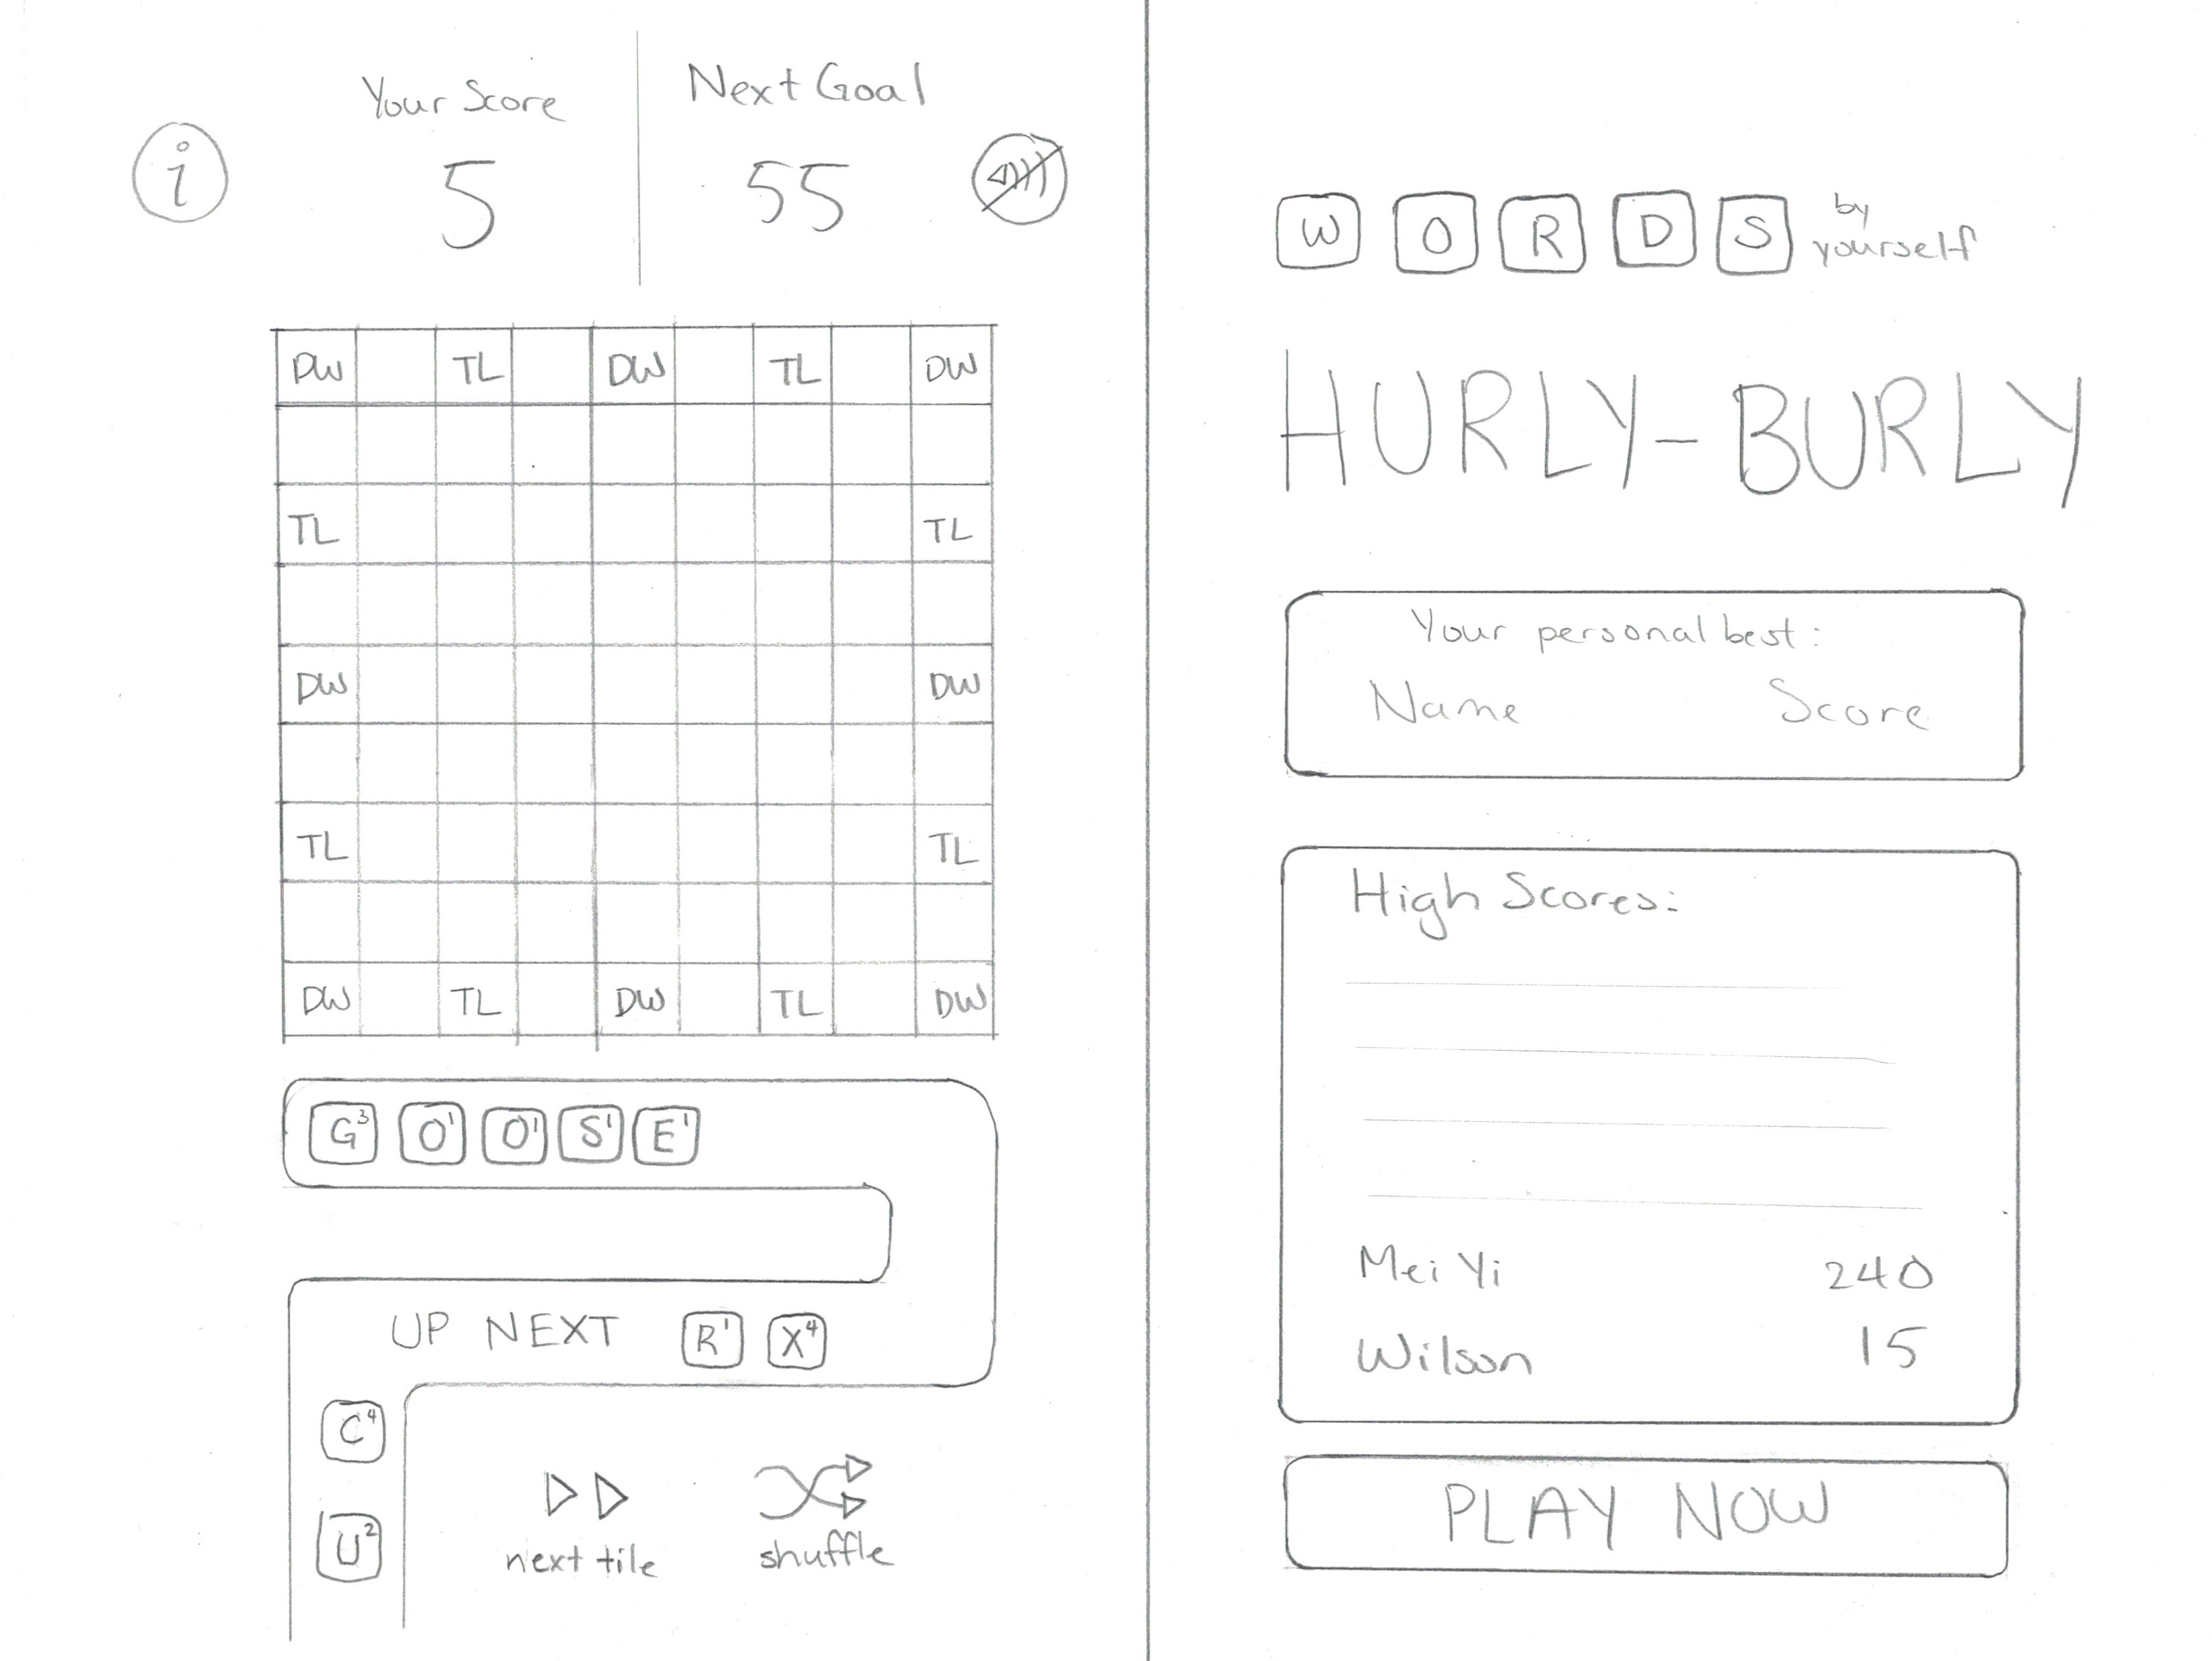 Your Score
5
Next Goal
55
i
DW TL DW TL DW
TL TL
DW DW
TL TL
DW TL DW TL DW
G3 O1 O1 S1 E1
UP NEXT R1 X4
C4
U2
next tile
shuffle
WORDS by
yourself
HURLY-BURLY
Your personal best:
Name Score
High Scores:
Mei Yi 240
Wilson 15
PLAY NOW